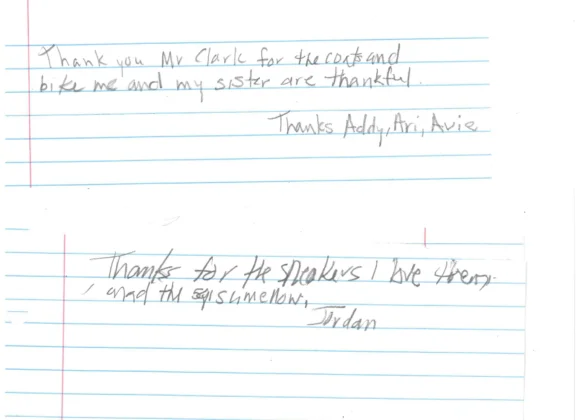 Thank you Mr Clark for the coats and
bike me and my sister are thankful.
Thanks Addy, Ari, Avie
Thanks for the speakers I love them
and the sqisumellow,
Jordan